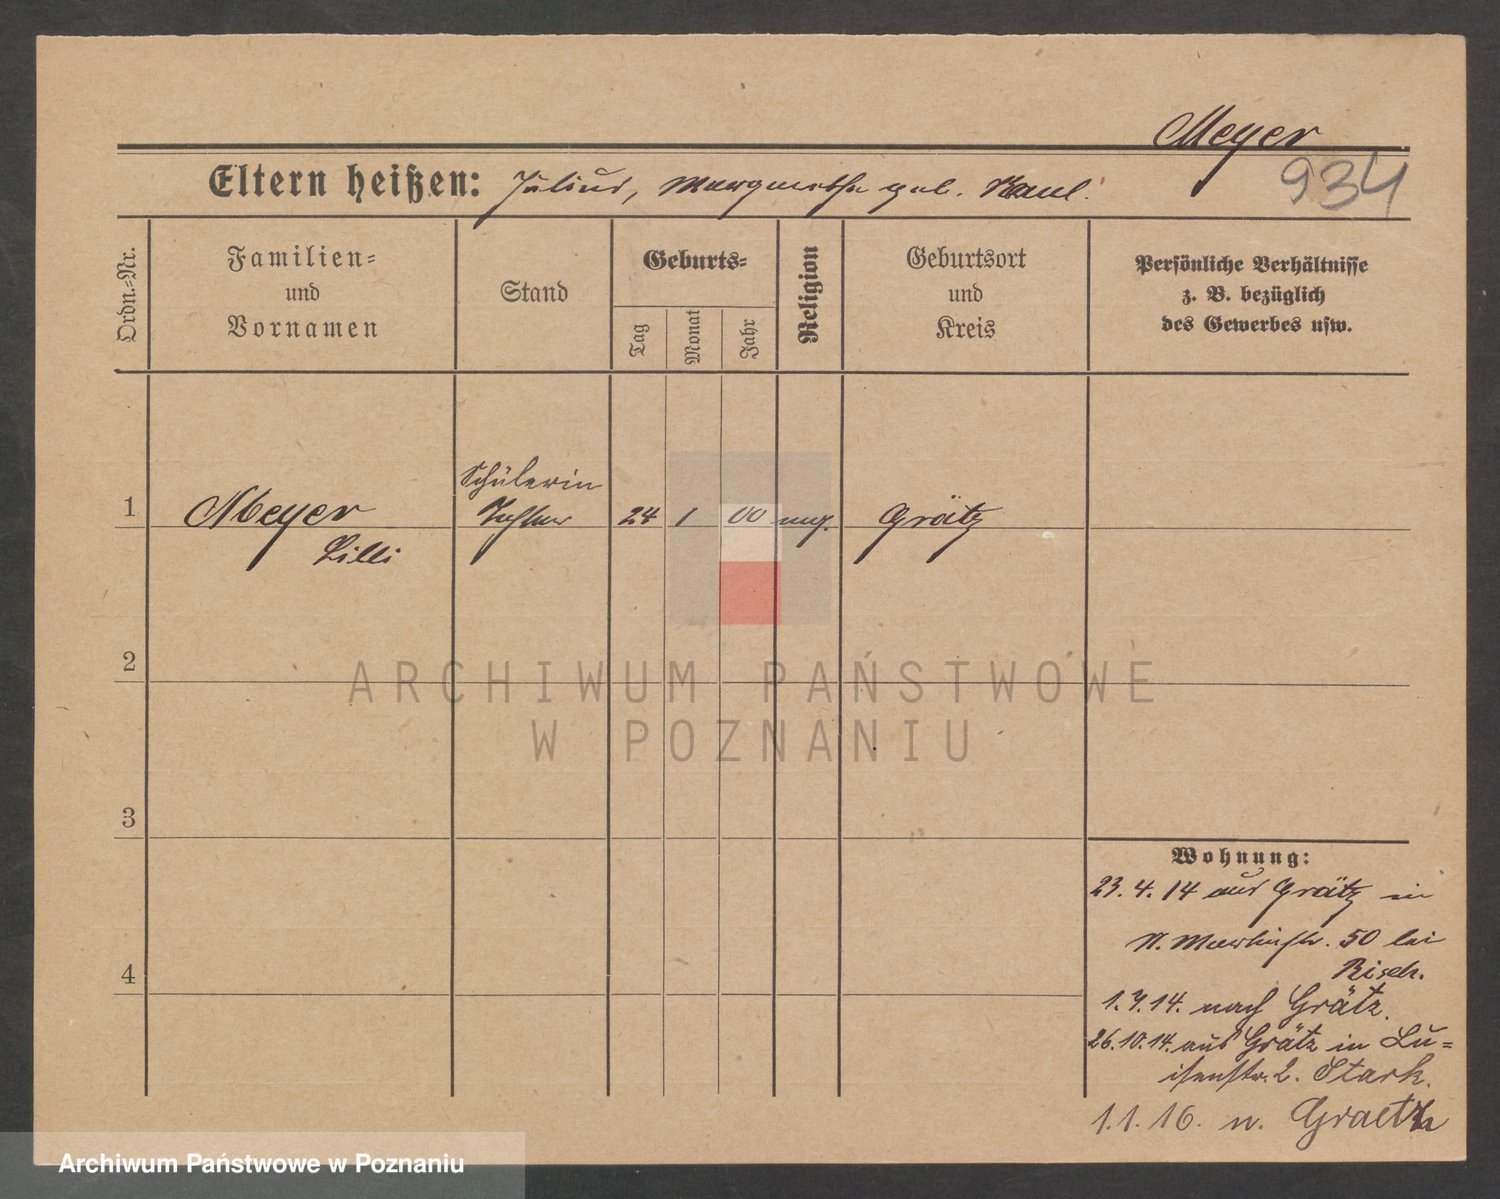 Meyer
934
Eltern heißen: Julius, Margarethe geb. Kaul.
Ordn.-Nr.
Familien-
und
Vornamen
Stand
Geburts-
Tag
Monat
Jahr
Religion
Geburtsort
und
Kreis
Persönliche Verhältnisse
z. B. bezüglich
des Gewerbes usw.
Schülerin
1 Meyer Tochter 24 1 00 Grätz
Lilli
2
3
4
Wohnung:
23. 4. 14 aus Grätz in
Martinstr. 50 bei
1.7.14. nach Grätz.
26.10.14. aus Grätz in Lu=
isenstr. 2. Stark.
1.1.16. n. Graetz
ARCHIWUM PAŃSTWOWE
W POZNANIU
Archiwum Państwowe w Poznaniu